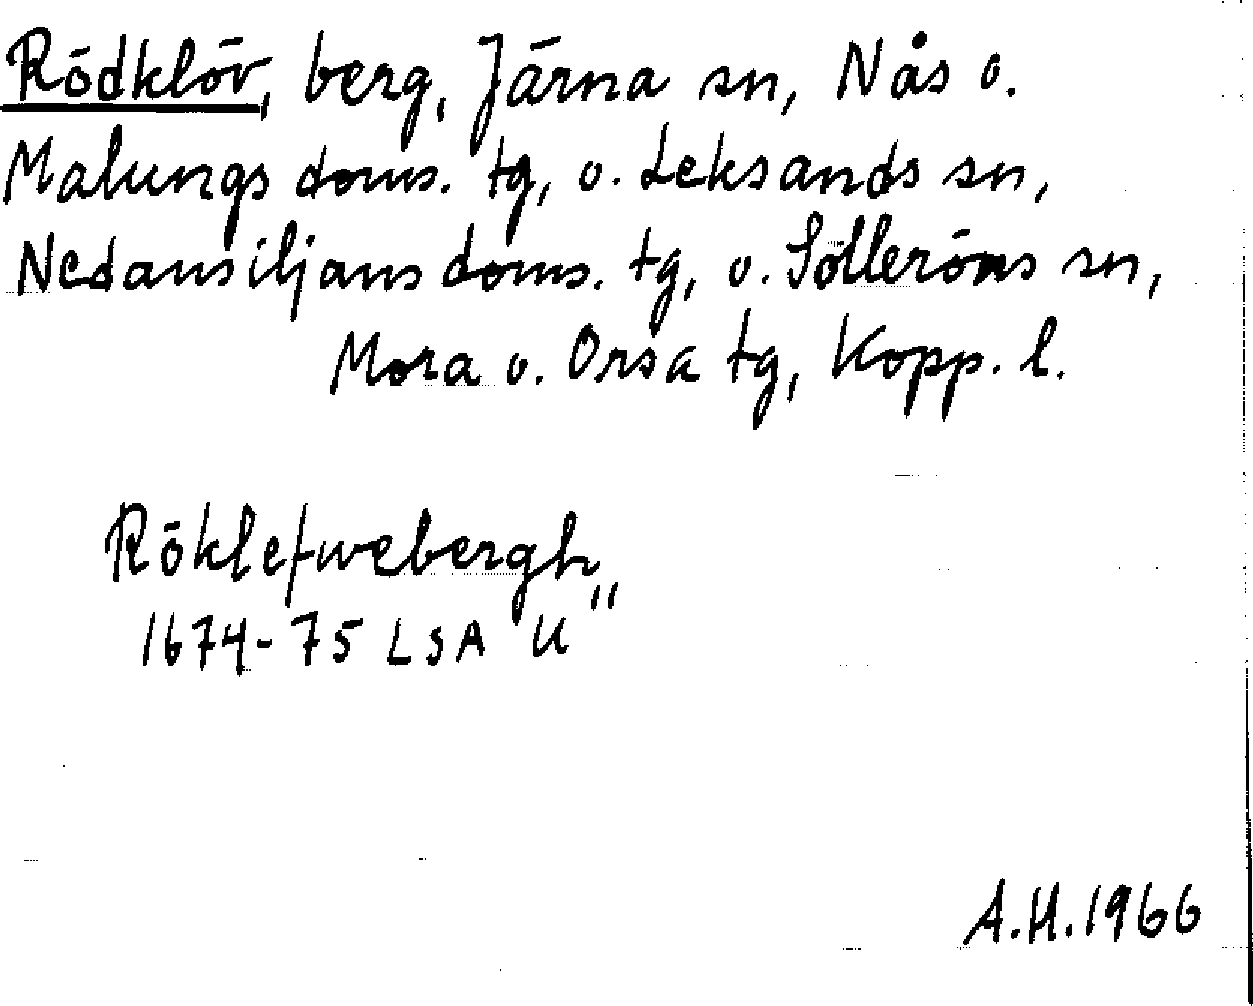 Rödklöv, berg, Järna sn, Nås o.
Malungs doms. tg, o. Leksands sn,
Nedansiljans doms. tg, o. Solleröns sn,
Mora o. Orsa tg, Kopp. l.
Röklefwebergh
1674-75 LSA "U"
A.H. 1966